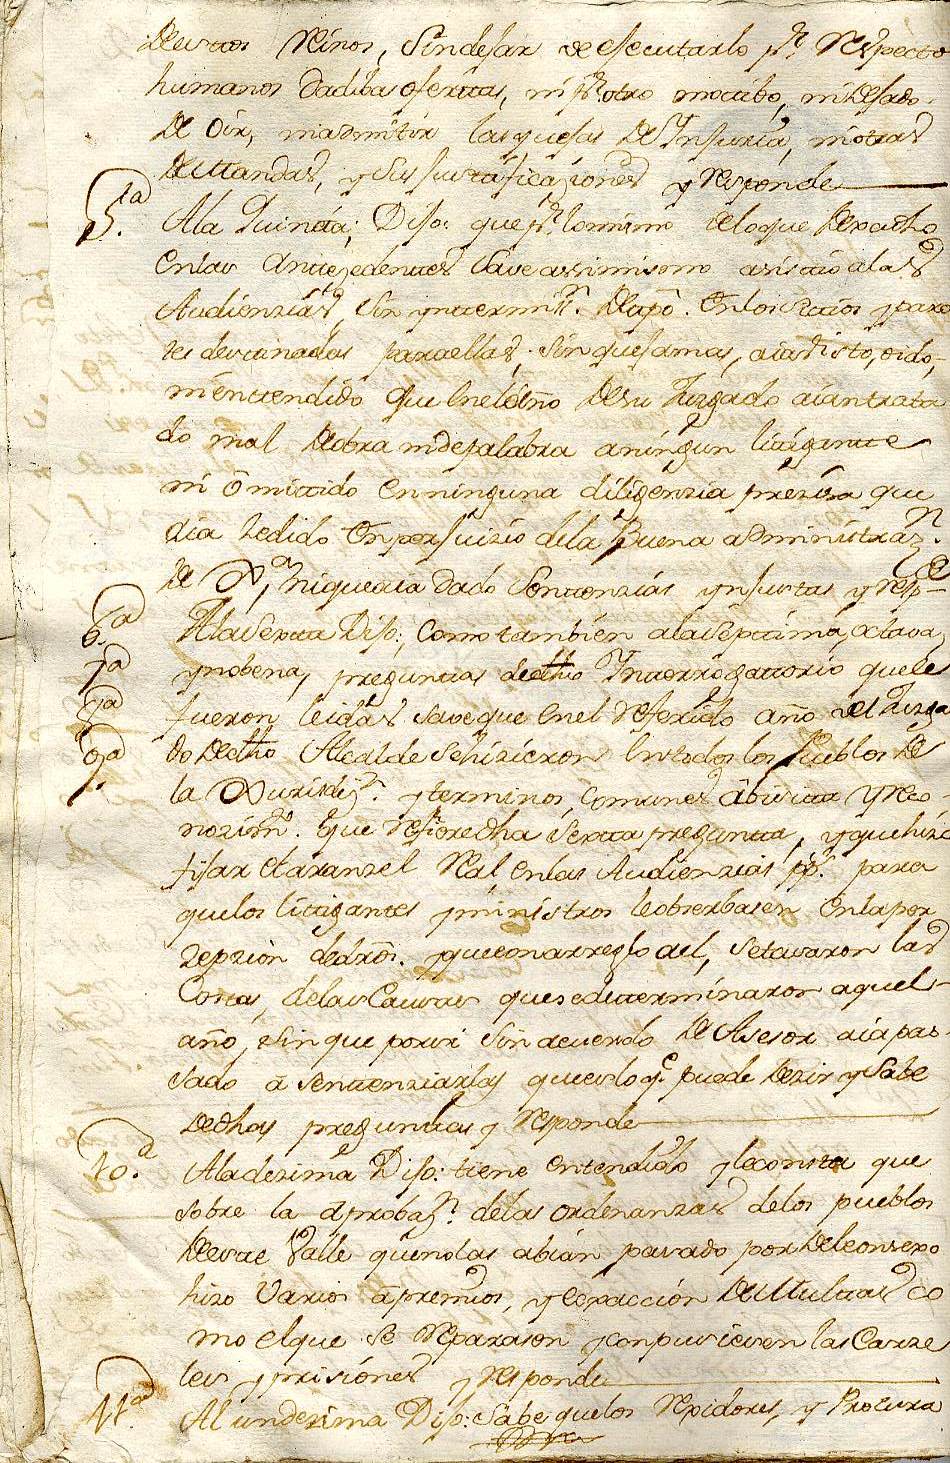 destos Reinos, sin dejar de ejecutarlo pr. Respecto
humanos dadibas ofertas, ni pr. otro motibo, ni dejado
de oir, ni admitir las quejas de Injuria, ni otras
demandas, y sus justificaziones y responde
5.a A la Quinta; Dijo: que pr. lo mismo de lo que depuesto
en las Antezedentes save assimismo asistio a las
Audienzias, sin yntermin. del apo. en los sitios y par
tes destinadas para ellas, sin que jamas, aia visto, oido,
ni entendido que en el dho año de su Juzgado aia trata
do mal de obra ni de palabra a ningun litigante
ni omittido en ninguna diligenzia preziza que
aia zedido en perjuizio de la Buena administraz.n
de Jn. ni que aia dado sentenzias ynjustas y resp.e
6.a A la sexta Dijo; Como tambien a la septtima, octava,
7.a y nobena, preguntas de dho Interrogattorio que le
8.a fueron leidas save que en el referido año del Juzga
9.a do de dho Alcalde se hizieron en todos los Pueblos de
la Jurisdiz.n y terminos comunes la bisita y reco
nozim.to que refiere dha sexta pregunta, y que hizo
fijar el aranzel Real en las Audienzias pp.cas para
que los littigantes y ministros le obserbasen en la per
zepzion de dros. y que con arreglo a el, se tasaron las
Costas, de las Causas que se determinaron aquel
año, sin que por si sin acuerdo de Asesor aia pas
sado a sentenziarlas que es lo q.e puede dezir y sabe
de dhas preguntas y responde
10.a A la dezima Dijo: tiene entendido y le consta que
sobre la aprobaz.n de las ordenanzas de los pueblos
deste Valle que no las abian pasado por el consexo
hizo varios apremios, y exacción de Multas co
mo el que se reparasen y conpusiesen las Carze
les y prisiones y responde
11.a A la undezima Dijo: Sabe que los Rejidores, y Procura